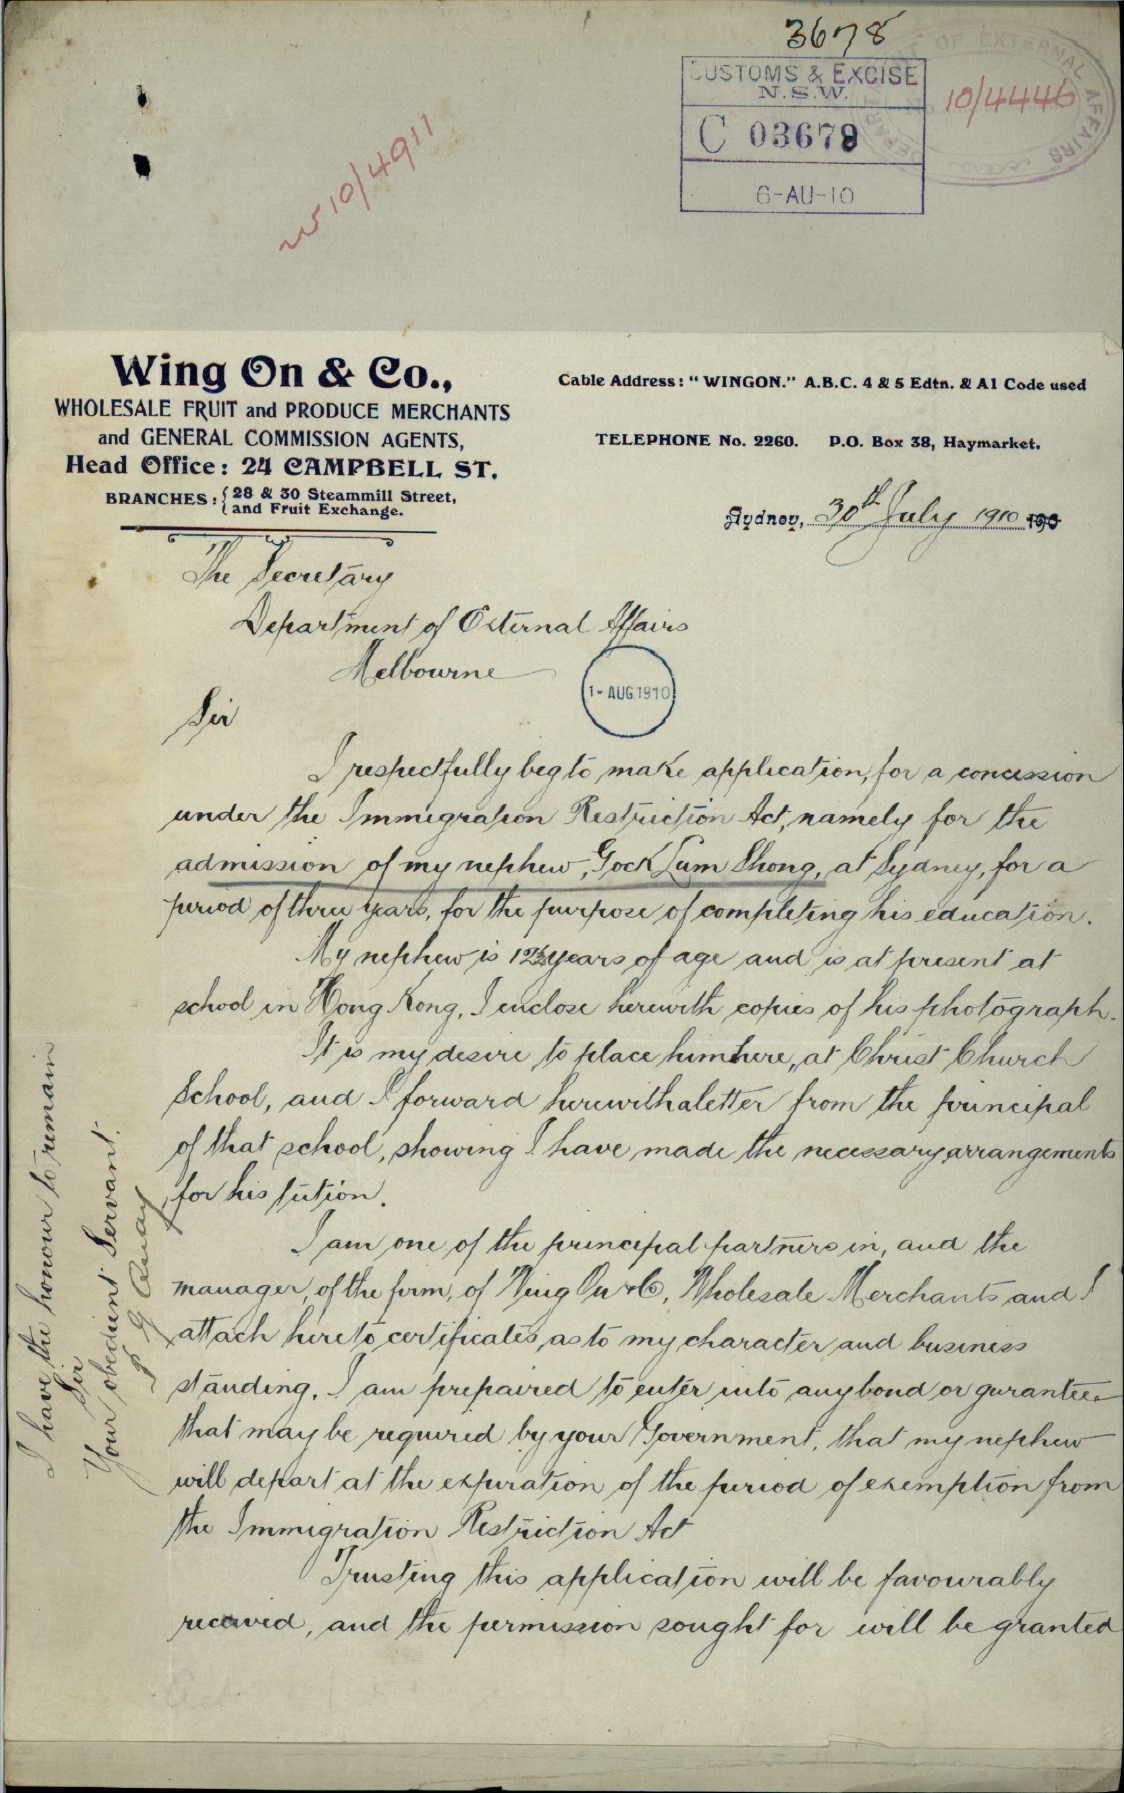 3678
CUSTOMS & EXCISE
N.S.W.
C 03679
6-AU-10
DEPARTMENT OF EXTERNAL AFFAIRS
10/4446
10/4911
Wing On & Co.,
WHOLESALE FRUIT and PRODUCE MERCHANTS
and GENERAL COMMISSION AGENTS,
Head Office: 24 CAMPBELL ST.
BRANCHES: { 28 & 30 Steammill Street,
and Fruit Exchange.
Cable Address: "WINGON." A.B.C. 4 & 5 Edtn. & A1 Code used
TELEPHONE No. 2260. P.O. Box 38, Haymarket.
Sydney, 30th July 1910 190
The Secretary
Department of External Affairs
Melbourne
1-AUG 1910
Sir
I respectfully beg to make application, for a concession
under the Immigration Restriction Act, namely for the
admission of my nephew, Gock Lum Shong, at Sydney, for a
period of three years, for the purpose of completing his education.
My nephew is 12½ years of age and is at present at
school in Hong Kong, I enclose herewith copies of his photograph.
It is my desire to place him here, at Christ Church
School, and I forward herewith a letter from the principal
of that school, showing I have made the necessary arrangements
for his tution.
I am one of the principal partners in, and the
manager, of the firm, of Wing On & Co, Wholesale Merchants and I
attach hereto certificates, as to my character and business
standing. I am prepaired to enter into any bond or gurantee
that may be required by your Government, that my nephew
will depart at the expiration of the period of exemption from
the Immigration Restriction Act
Trusting this application will be favourably
received, and the permission sought for will be granted
I have the honour to remain
Sir
Your obedient Servant.
P G Quay